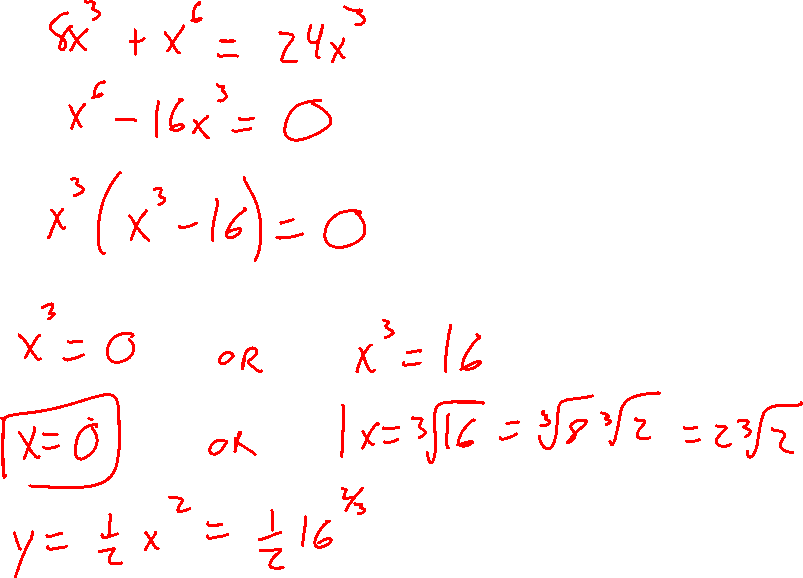 8x³ + x⁶ = 24x³
x⁶ - 16x³ = 0
x³(x³ - 16) = 0
x³ = 0 OR x³ = 16
x = 0 OR x = ∛16 = ∛8 ∛2 = 2∛2
y = ½ x² = ½ 16^(2/3)